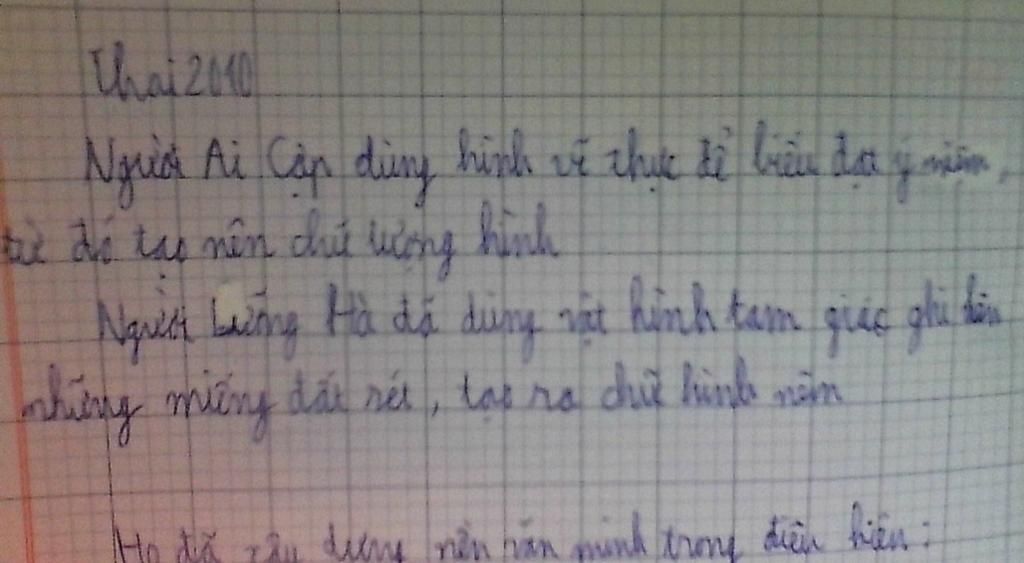 Thai2010
Người Ai Cập dùng hình vẽ thực để biểu đạt ý niệm,
từ đó tạo nên chữ tượng hình
Người Lưỡng Hà đã dùng vật hình tam giác ghi lên
những miếng đất sét, tạo ra chữ hình nêm
Họ đã xây dựng nền văn minh trong điều kiện: